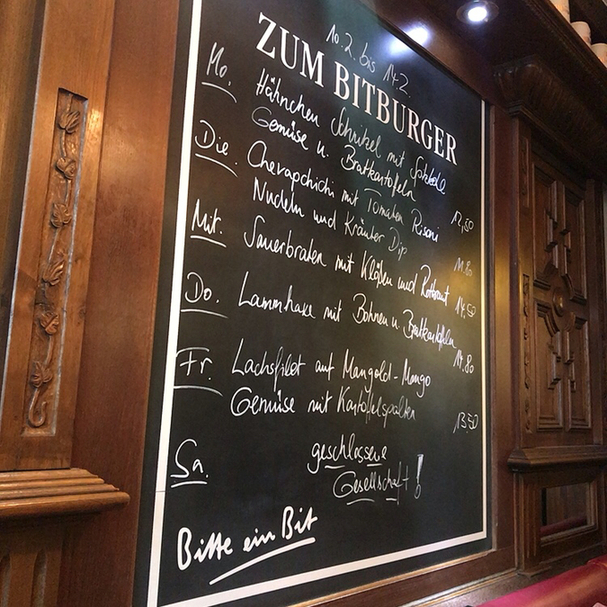 10.2. bis 14.2.
ZUM BITBURGER
Mo. Hähnchen Schnitzel mit
Gemüse u. Bratkartofeln 12,50
Die. Chevapchichi mit Tomaten Risoni
Nudeln und Kräuter Dip 11.80
Mit. Sauerbraten mit Klößen und Rotkraut 14,50
Do. Lammhaxe mit Bohnen u. Bratkartofeln 14.80
Fr. Lachsfilet auf Mangold-Mango
Gemüse mit Kartoffelspalten 13.50
Sa. geschlossene
Gesellschaft!
Bitte ein Bit